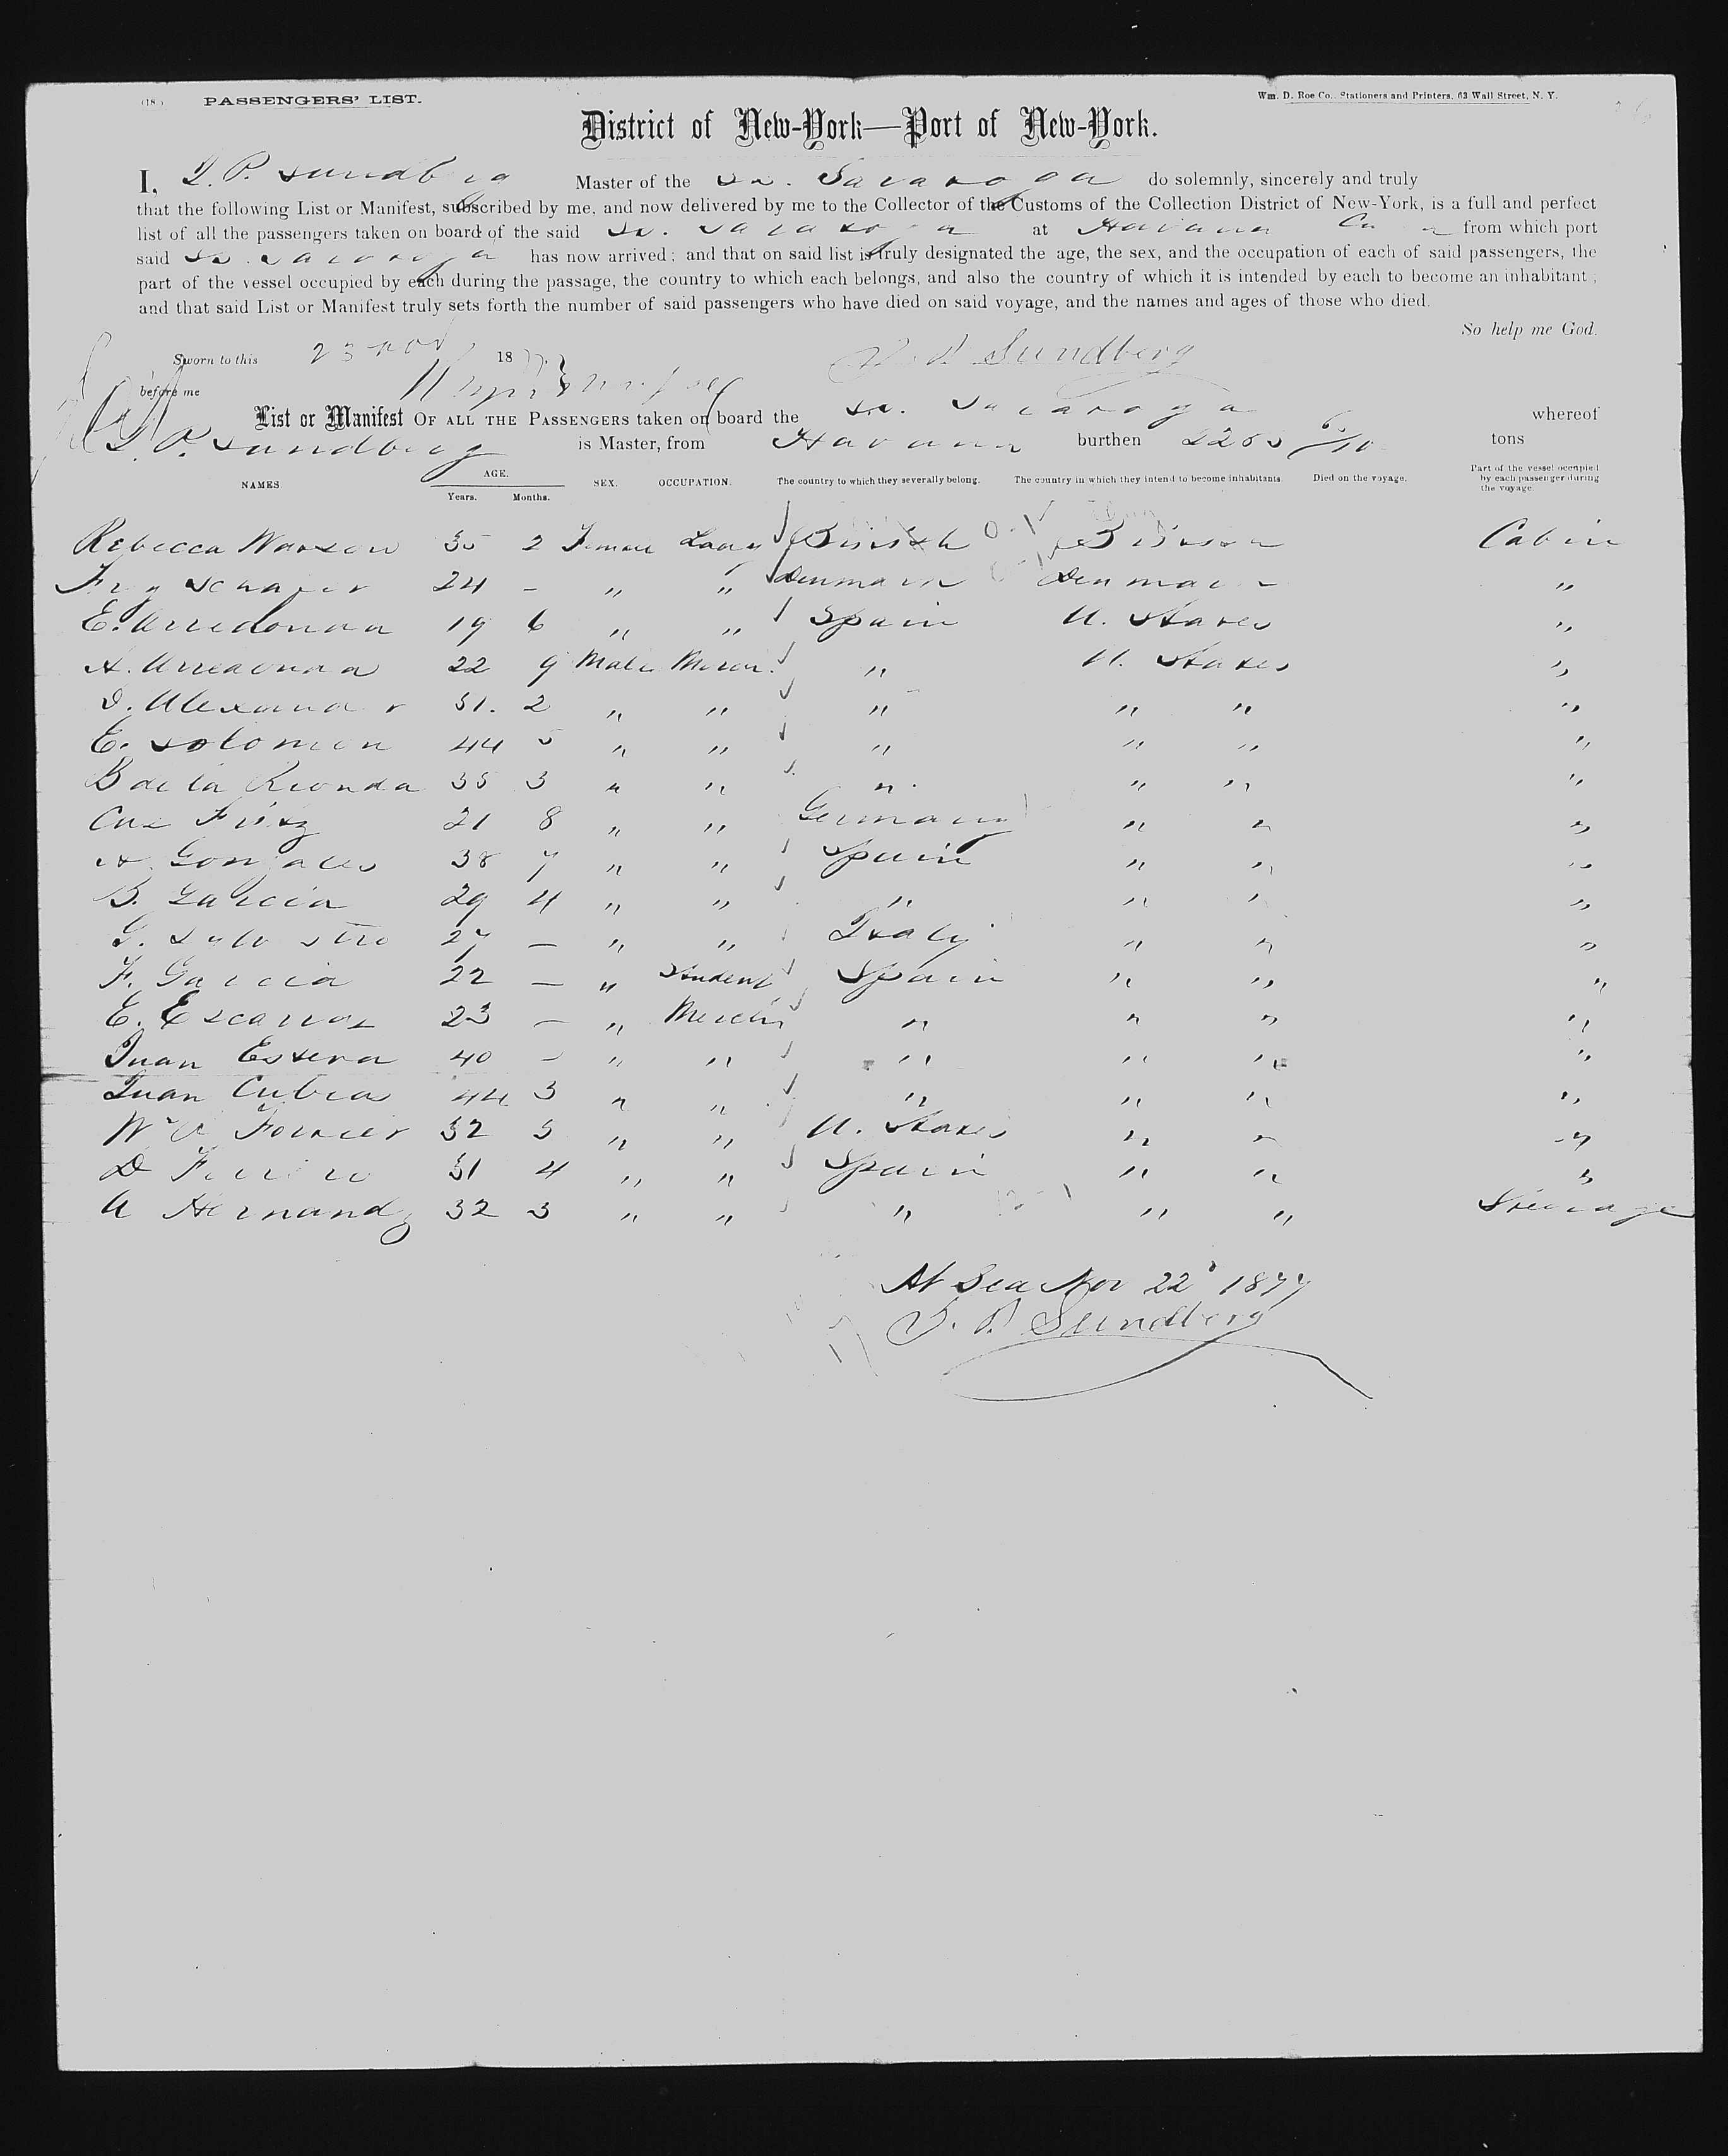 (18) PASSENGERS' LIST. Wm. D. Roe Co., Stationers and Printers, 63 Wall Street, N. Y.
District of New-York—Port of New-York.
I, T. P. Sundberg Master of the Sr. Saratoga do solemnly, sincerely and truly
that the following List or Manifest, subscribed by me, and now delivered by me to the Collector of the Customs of the Collection District of New-York, is a full and perfect
list of all the passengers taken on board of the said Sr. Saratoga at Havana Cuba from which port
said Sr. Saratoga has now arrived; and that on said list is truly designated the age, the sex, and the occupation of each of said passengers, the
part of the vessel occupied by each during the passage, the country to which each belongs, and also the country of which it is intended by each to become an inhabitant;
and that said List or Manifest truly sets forth the number of said passengers who have died on said voyage, and the names and ages of those who died.
So help me God.
Sworn to this 23 Nov 1877. T. P. Sundberg
before me
List or Manifest OF ALL THE PASSENGERS taken on board the Sr. Saratoga whereof
T. P. Sundberg is Master, from Havana burthen tons
NAMES. AGE. Years. Months. SEX. OCCUPATION. The country to which they severally belong. The country in which they intend to become inhabitants. Died on the voyage. Part of the vessel occupied by each passenger during the voyage.
Rebecca 35 2 Female Lady British Cabin
24 – " " Denmark Denmark "
E. Arredonda 19 6 " " Spain U. States "
A. Arredonda 22 9 Male Merch. " U. States "
D. Alexander 31. 2 " " " " " "
E. Solomon 44 5 " " " " " "
B de la Rionda 35 3 " " " " " "
Fritz 21 8 " " Germany " " "
A. Gonzales 38 7 " " Spain " " "
B. Garcia 29 4 " " " " " "
G. 27 – " " Italy " " "
F. Garcia 22 – " Student Spain " " "
E. 23 – " Merch " " " "
Juan Esteva 40 – " " " " " "
Juan Cubia 44 3 " " " " " "
Wm A 32 3 " " U. States " " "
D 31 4 " " Spain " " "
A Hernandz 32 3 " " " " " Steerage
At Sea Nov 22d 1877
T. P. Sundberg